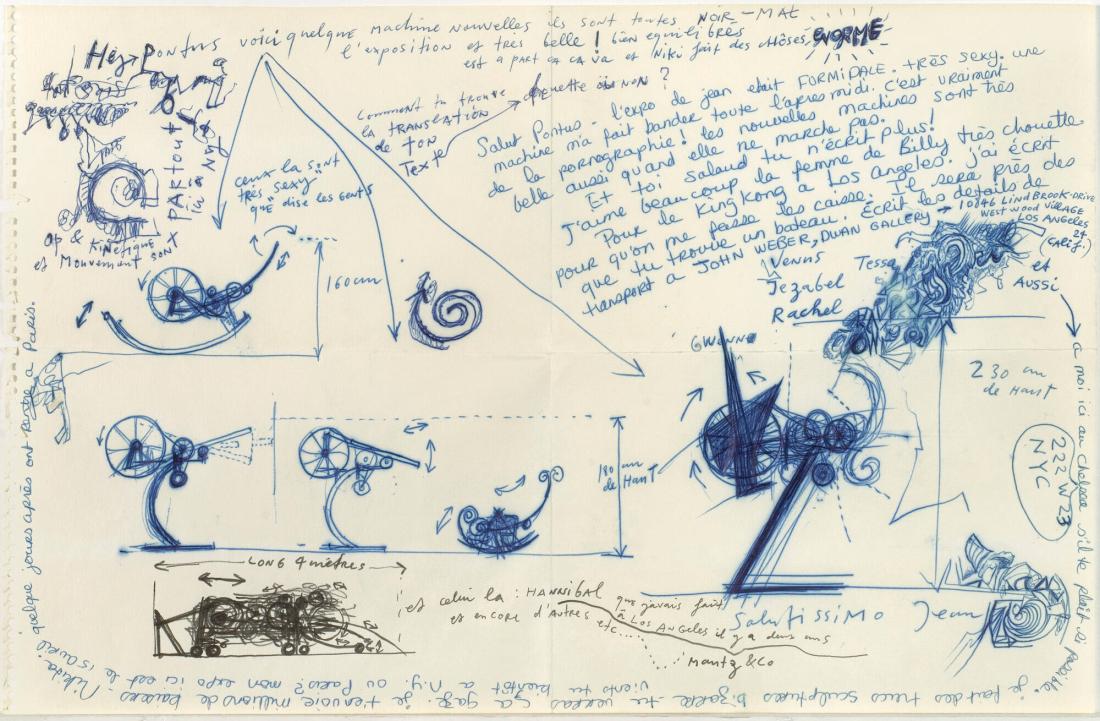 Hey Pontus voici quelque machine nouvelles ils sont toutes NOIR-MAT
l'exposition est très belle! bien equilibres
est a part ca ca va et Niki fait des choses ENORME
Op & Kinétique
et Mouvement son
PARTOUT
ici a NY
ceux la sont
très sexy
que dise les gents
Comment tu trouve
la TRANSLATION
de TON
Text
chouette ou NON?
Salut Pontus - l'expo de jean etait FORMIDALE. très sexy. une
machine m'a fait bander toute l'apres midi. c'est vraiment
de la pornographie! les nouvelles machines sont très
belle aussi quand elle ne marche pas.
Et toi salaud tu n'écrit plus!
J'aime beaucoup la femme de Billy très chouette
Pour le KingKong a Los Angeles. j'ai ECRIT
pour qu'on me fasse les caisse. Il sera près des
que tu trouve un bateau. Écrit les détails de
transport a JOHN WEBER, DWAN GALLERY → 10846 LINDBROOK-DRIVE
WESTWOOD VILLAGE
LOS ANGELES
24
(CALIF.)
et
Aussi
a moi ici au chelsea s'il te plait si possible
222 W 23
NYC
Venus
Jezabel
Rachel
Tessa
GWENN
160 cm
180 cm
de Haut
230 cm
de Haut
LONG 4 mètres
et celui la: HANNIBAL que j'avais fait
à LOS ANGELES il y a deux ans
et encore d'autres etc....
Mantz & Co
Salutissimo Jean
je fait des trucs sculptures bizarre tu verras ça gaze. je t'envoie millions de baisers. Nikida
viens tu bientôt a N.Y. ou Paris? mon expo ici est le 15 avril
quelque jours après ont rentre a Paris.